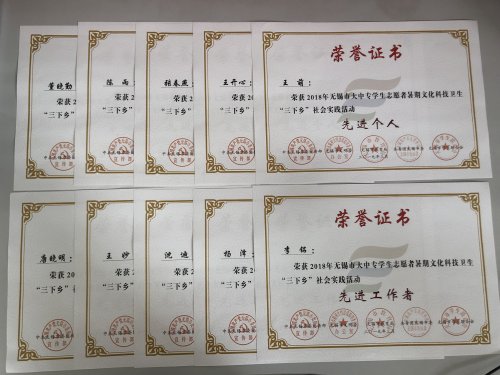 董晓勤
荣获
"三下乡"
陈雨
荣获
"三下乡"
张春燕
荣获
"三下乡"
王开心：
荣获2
"三下乡"
荣誉证书
王萌：
荣获2018年无锡市大中专学生志愿者暑期文化科技卫生
"三下乡"社会实践活动
先进个人
宣传部
二〇一九年三月
唐晓明：
荣获20
"三下乡"
王妙
荣获
"三下乡"
沈迪
荣获
"三下乡"
杨津：
荣获2
"三下乡"
荣誉证书
李铭：
荣获2018年无锡市大中专学生志愿者暑期文化科技卫生
"三下乡"社会实践活动
先进工作者
宣传部
二〇一九年三月